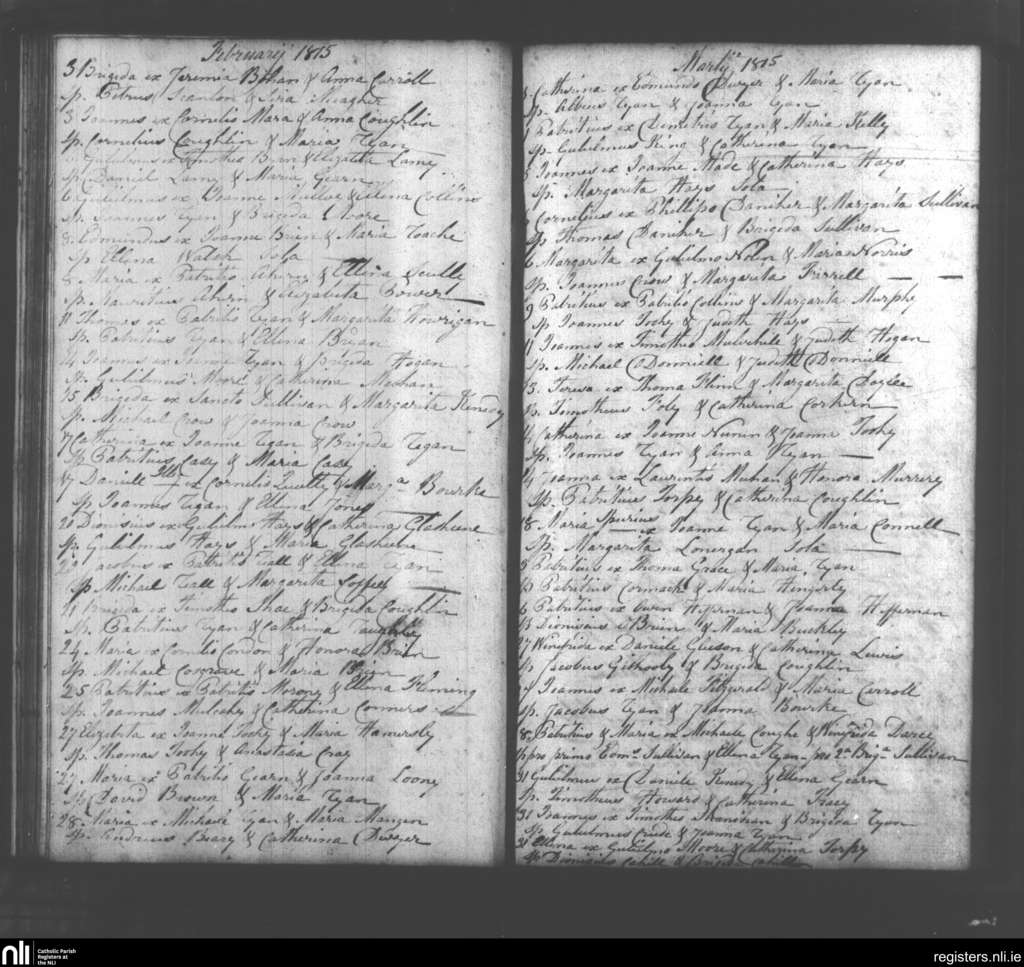 Februarij 1815
3 Brigida ex Jeremia Bohan & Anna Carroll
Sp. Petrus Scanlon & Meagher
3 Joannes ex Cornelio Mara & Anna Coughlin
Sp. Cornelius Coughlin & Maria Ryan
Gulielmus ex Timotheo Ryan & Elizabeta Lamy
Sp. Daniel Lamy & Maria Gearn
6 Gulielmus ex Joanne & Ellena Collins
Sp. Joannes Ryan & Brigida Moore
8 Edmundus ex Joanne Brien & Maria Roache
Sp. Ellena Walsh Sola
Maria ex Patritio Ahern & Ellena
Sp. Mauritius Ahern & Elizabeta
11 Thomas ex Patritio Ryan & Margarita Hourigan
Sp. Patritius Ryan & Ellena Bryan
14 Joannes ex Ryan & Brigida Hogan
Sp. Gulielmus Moore & Catherina Meehan
15 Brigida ex Sancto Sullivan & Margarita Kenedy
Sp. Michael Crow & Joanna Crow
17 Catherina ex Joanne Egan & Brigida Egan
Sp. Patritius Casy & Maria Casy
17 Daniell ex Cornelio & Marga Bourke
Sp. Joannes Egan & Ellena Jones
20 Dionisius ex Gulielmo Hays & Catherina Glasheene
Sp. Gulielmus Hays & Maria Glasheene
20 Jacobus ex Patritio Tall & Ellena Ryan
Sp. Michael Tall & Margarita
21 Brigida ex Timotheo Shae & Brigida Coughlin
Sp. Patritius Ryan & Catherina
24 Maria ex Cornelio Condon & Honora Brien
Sp. Michael Cosgrave & Maria Brien
25 Patritius ex Patritio Morony & Ellena Fleming
Sp. Joannes Mulcahy & Catherina Conners
27 Elizabeta ex Joanne Toohy & Maria Hamersly
Sp. Thomas Toohy & Anastasia Cray
27 Maria ex Patritio Gearn & Joanna Loony
Sp. David Brown & Maria Ryan
28 Maria ex Michaele Ryan & Maria Mangen
Sp. Andreas Beary & Catherina Dwyer
Martij 1815
Catherina ex Edmundo Dwyer & Maria Ryan
Sp. Albeus Ryan & Joanna Ryan
Patritius ex Demetrio Ryan & Maria Kelly
Sp. Gulielmus King & Catherina Ryan
Joannes ex Joanne Wade & Catherina Hays
Sp. Margarita Hays Sola
Cornelius ex Phillipo Daniher & Margarita Sullivan
Sp. Thomas Daniher & Brigida Sullivan
6 Margarita ex Gulielmo Nolen & Maria Norris
Sp. Joannes Crow & Margarita
9 Patritius ex Patritio Collins & Margarita Murphy
Sp. Joannes Toohy & Judith Hays
11 Joannes ex Timotheo & Judith Hogan
Sp. Michael O Donniell & Judith O Donniell
13 Teresa ex Thoma Flinn & Margarita
Sp. Timotheus Foly & Catherina Corkern
14 Catherina ex Joanne Nunun & Joanna Toohy
Sp. Joannes Ryan & Anna Ryan
Joanna ex Laurentio Mehan & Honora Murrery
Sp. Patritius Torpy & Catherina Coughlin
18 Maria Spurius ex Joanne Ryan & Maria Connell
Sp. Margarita Lonergan Sola
Patritius ex Thoma Grace & Maria Ryan
Sp. Patritius Cormack & Maria
Patritius ex Owen Heffernan & Joanna Heffernan
Sp. Dionisius O Brien & Maria Buckley
27 Winefrida ex Daniele Gleeson & Catherina Lewis
Sp. Jacobus Gilhooly & Brigida Coughlin
Joannes ex Michaele Fitzgerald & Maria Carroll
Sp. Jacobus Ryan & Joanna Bourke
Patritius & Maria ex Michaele Coughe & Winefrida Darcy
Sp. pro primo Edms. Sullivan & Ellena Ryan pro 2a Briga Sullivan
31 Gulielmus ex Daniele Kenedy & Ellena Gearn
Sp. Timotheus Howard & Catherina Tracy
31 Joannes ex Timotheo Shanahan & Brigida Ryan
Sp. Gulielmus & Joanna Ryan
31 Ellena ex Gulielmo Moore & Catherina Torpy
Sp. Dionisius Cahill & Brigida Cahill
nli Catholic Parish
Registers at
the NLI
registers.nli.ie